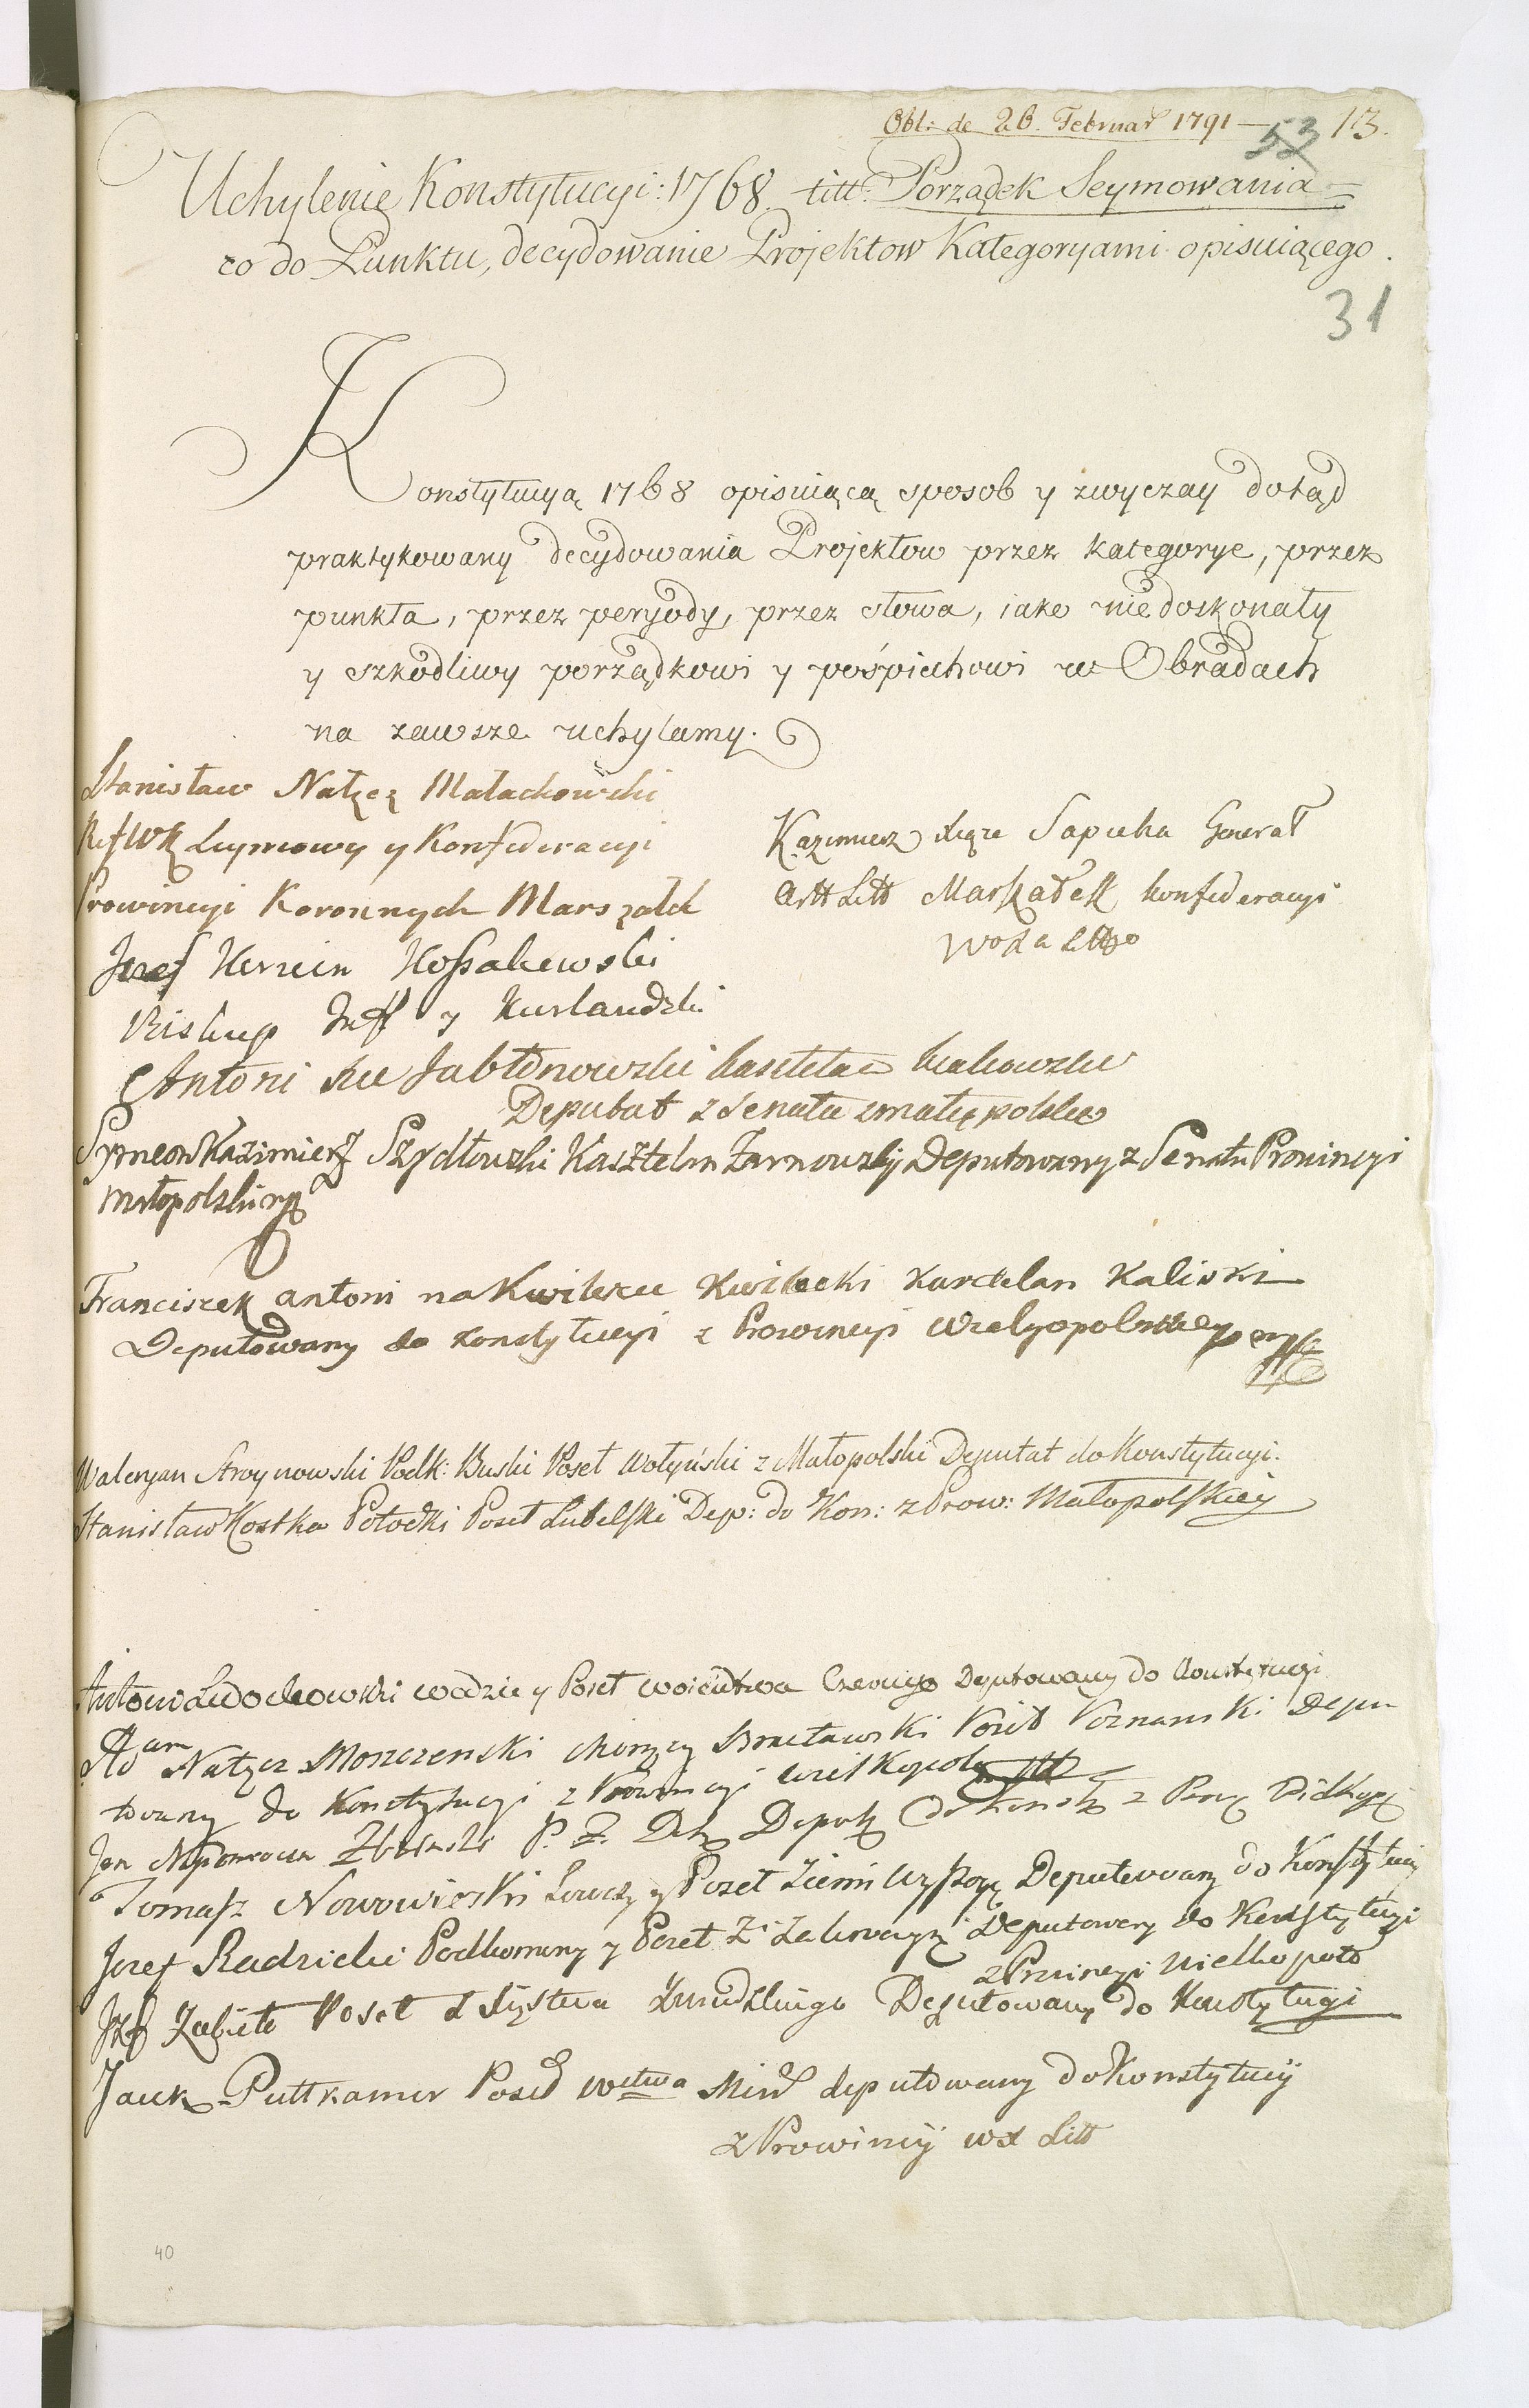 Obl: de 26. Februar 1791 — 53 13.
Uchylenie Konstytucyi: 1768. titt: Porządek Seymowania
co do Punktu, decydowanie Projektow Kategoryami opisuiącego.
31
Konstytucyą 1768 opisuiącą sposob y zwyczay dotąd
praktykowany decydowania Projektow przez kategorye, przez
punkta, przez peryody, przez słowa, iako niedoskonały
y szkodliwy porządkowi y pośpiechowi w Obradach
na zawsze uchylamy.
Stanisław Nałęcz Małachowski
Ref WK Seymowy y Konfederacyi
Prowincyi Koronnych Marszałek
Kazimierz Xiąże Sapieha Generał
Artt Litt Marszałek Konfederacyi
WoXa Litto
Jozef Korwin Kossakowski
Biskup Inff y Kurlandzki
Antoni Xże Jabłonowski Kasztelan Krakowski
Deputat z Senatu z małey polski
Symeon Kazimierz Szydłowski Kasztelan Żarnowski Deputowany z Senatu Prowincyi
Małopolskiey
Franciszek Antoni na Kwilczu Kwilecki Kasztelan Kaliski
Deputowany do Konstytucyi z Prowincyi Wielgopolskiey mp
Waleryan Stroynowski Podk: Buski Poseł Wołyński z Małopolski Deputat do Konstytucyi.
Stanisław Kostka Potocki Poseł Lubelski Dep: do Kon: z Prow: Małopolskiey
Antoni Ledochowski y Poseł Deputowany do Konstytucyi
Adam Nałęcz Moszczenski Chorązy Bracławski Poseł Poznanski Depu
towany do Konstytucyi z Prowincyi Wielkopol
Jan Nepomocen Zboinski P. Z. Do Deput do Konst z Pro Wielkop
Tomasz Nowowieski Łowczy y Poseł Ziemi Wyszog Deputowany do Konstytucyi
Jozef Radzicki Podkomorzy y Poseł Z: Zakroczym Deputowany do Konstytucyi
z Prowincyi Wielkopol
Jzf Zabiełło Poseł z Xięstwa Zmudzkiego Deputowany do Konstytucyi
Jacek Puttkamer Poseł wctwa Min deputowany do Konstytucyi
z Prowincyi wX Litt
40